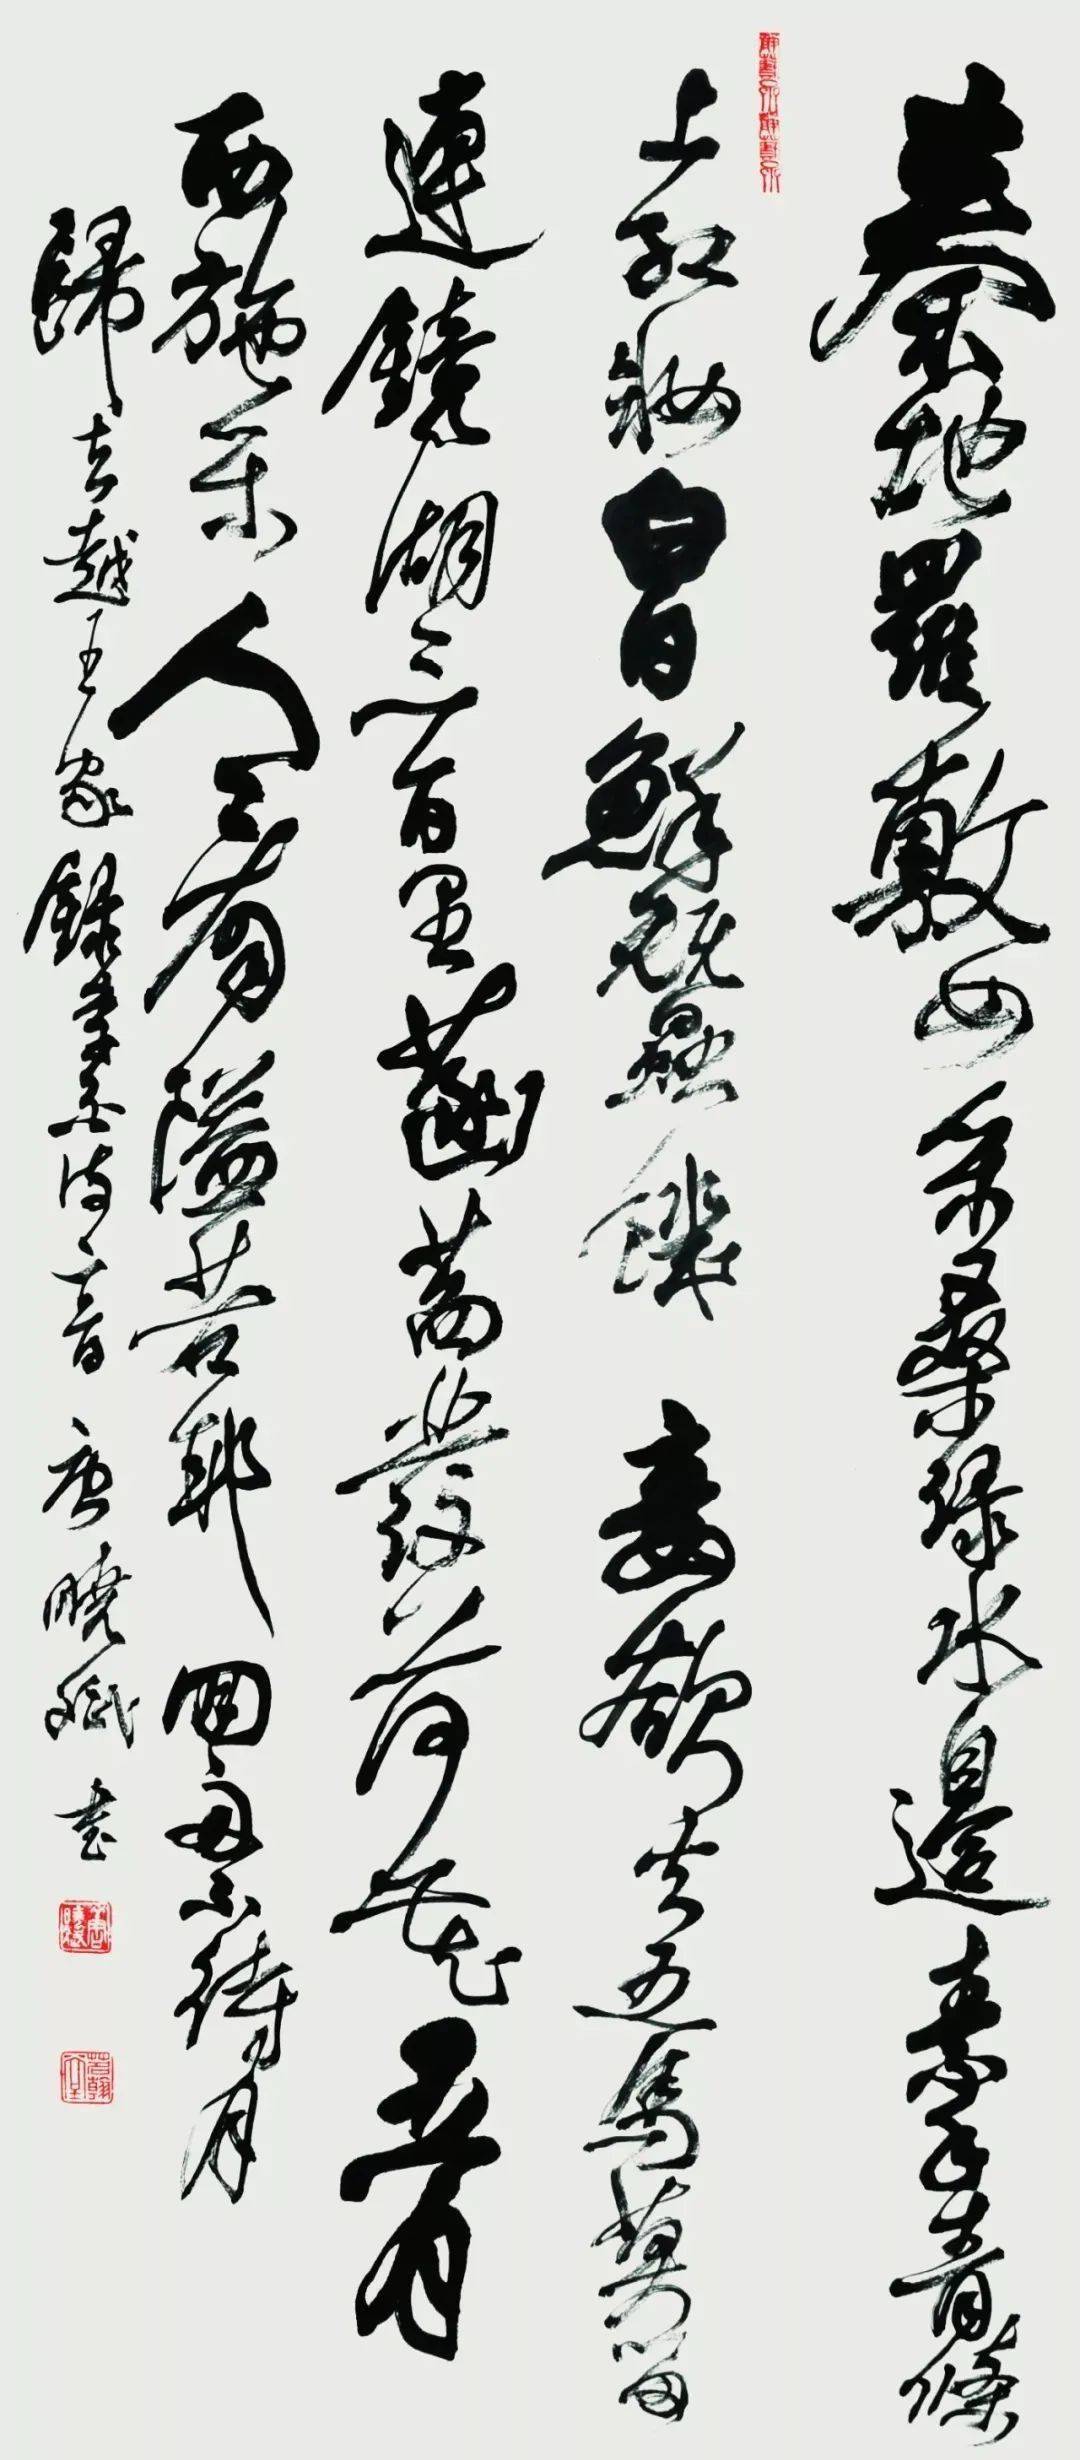 秦地羅敷女采桑綠水邊素手青條
上紅妝白日鮮蠶饑妾欲去五馬莫留
連鏡湖三百里菡萏發荷花五月
西施采人看隘若耶回舟不待月
歸去越王家錄李白詩二首唐曉斌書